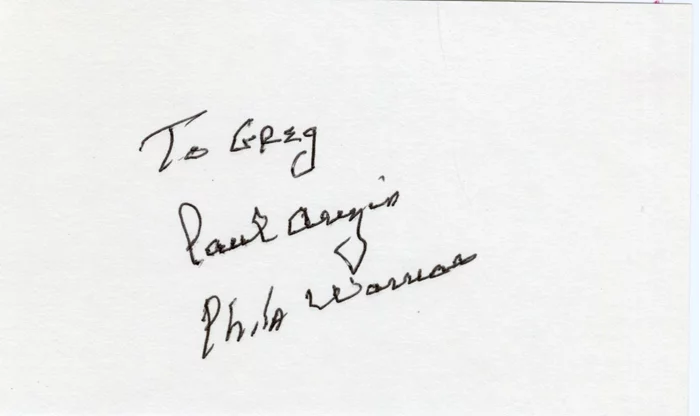 To GREg
Paul Arizin
Phila Warriors